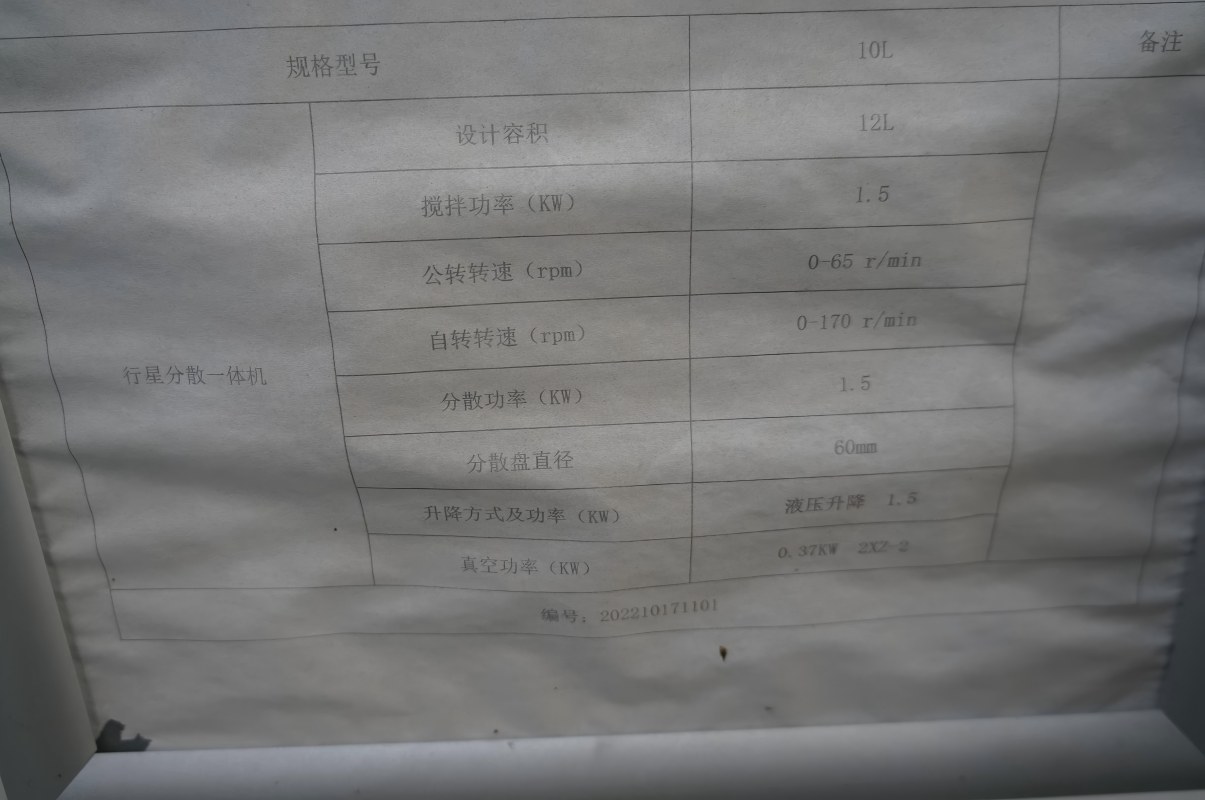 规格型号 10L 备注
设计容积 12L
搅拌功率（KW） 1.5
公转转速（rpm） 0-65 r/min
自转转速（rpm） 0-170 r/min
行星分散一体机
分散功率（KW） 1.5
分散盘直径 60mm
升降方式及功率（KW） 液压升降 1.5
真空功率（KW） 0.37KW 2XZ-2
编号：202210171101